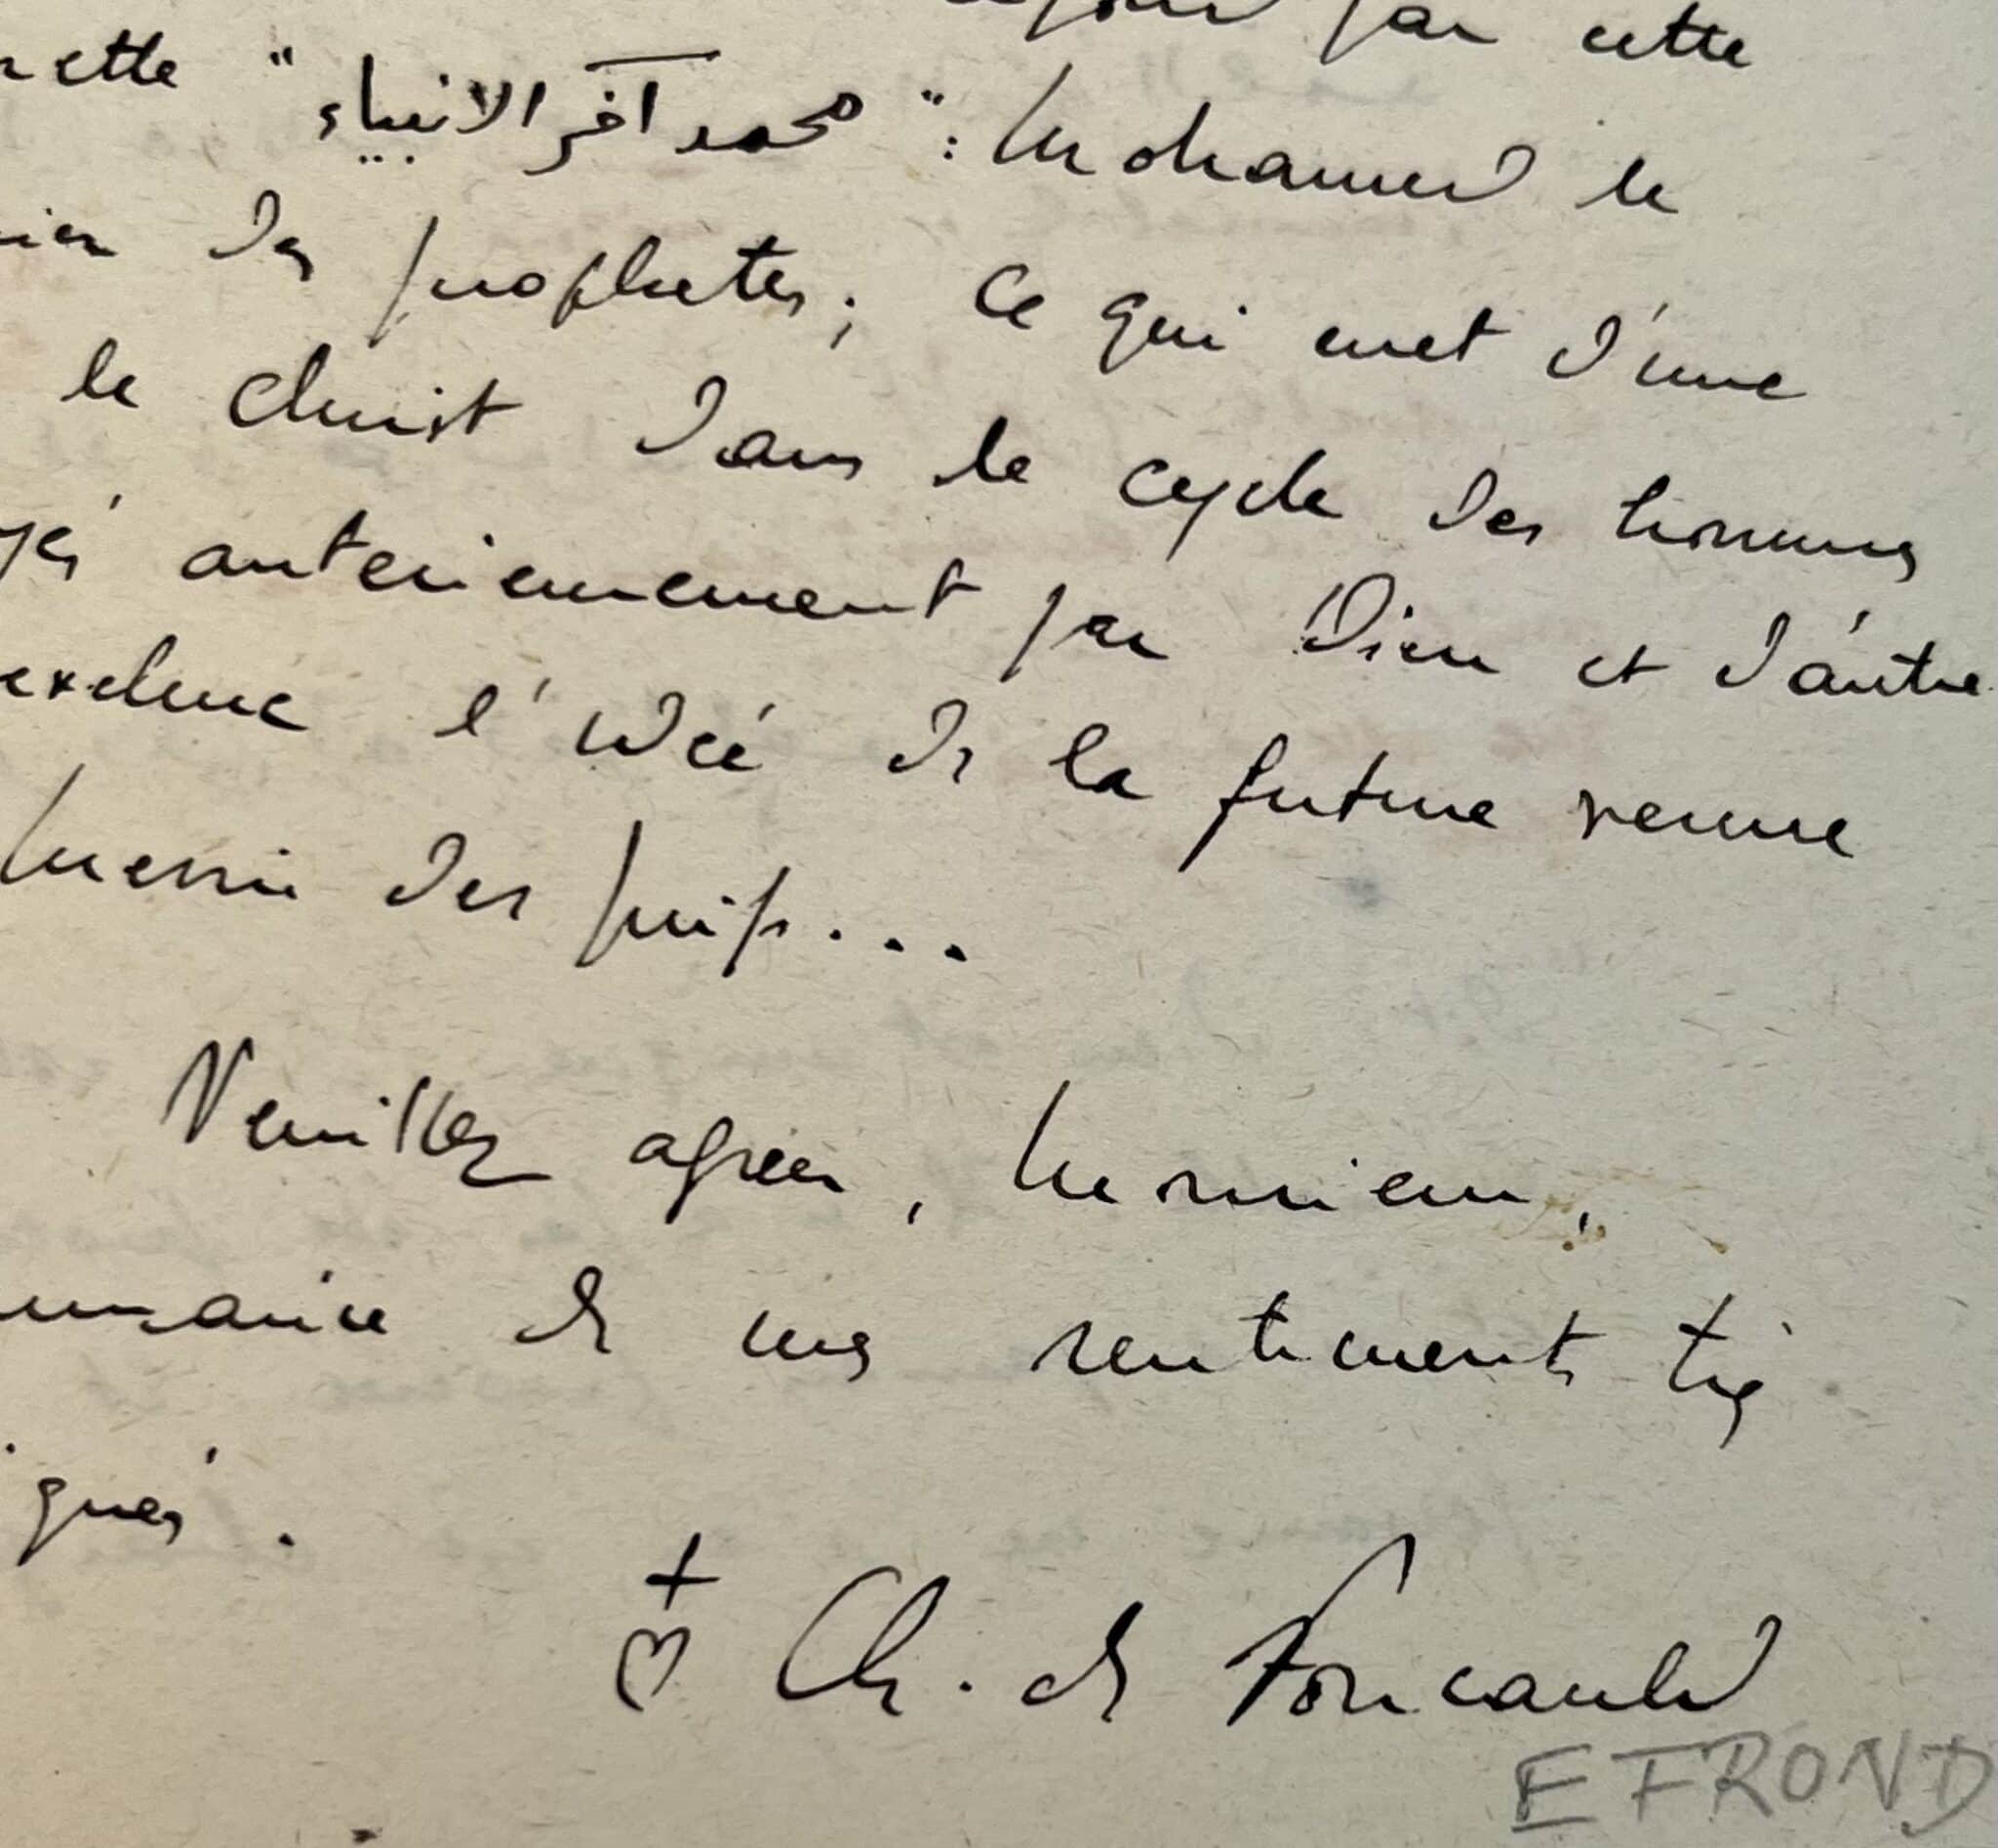 par cette
cette "محمد آخر الانبياء": Mohamed le
des prophètes; ce qui met d'une
le Christ dans le cycle des hommes
antérieurement par Dieu et d'autre
exclue l'idée de la future venue
Messie des Juifs...
Veuillez agréer, Monsieur,
de mes sentiments très
gués.
Ch. de Foucauld
EFROND